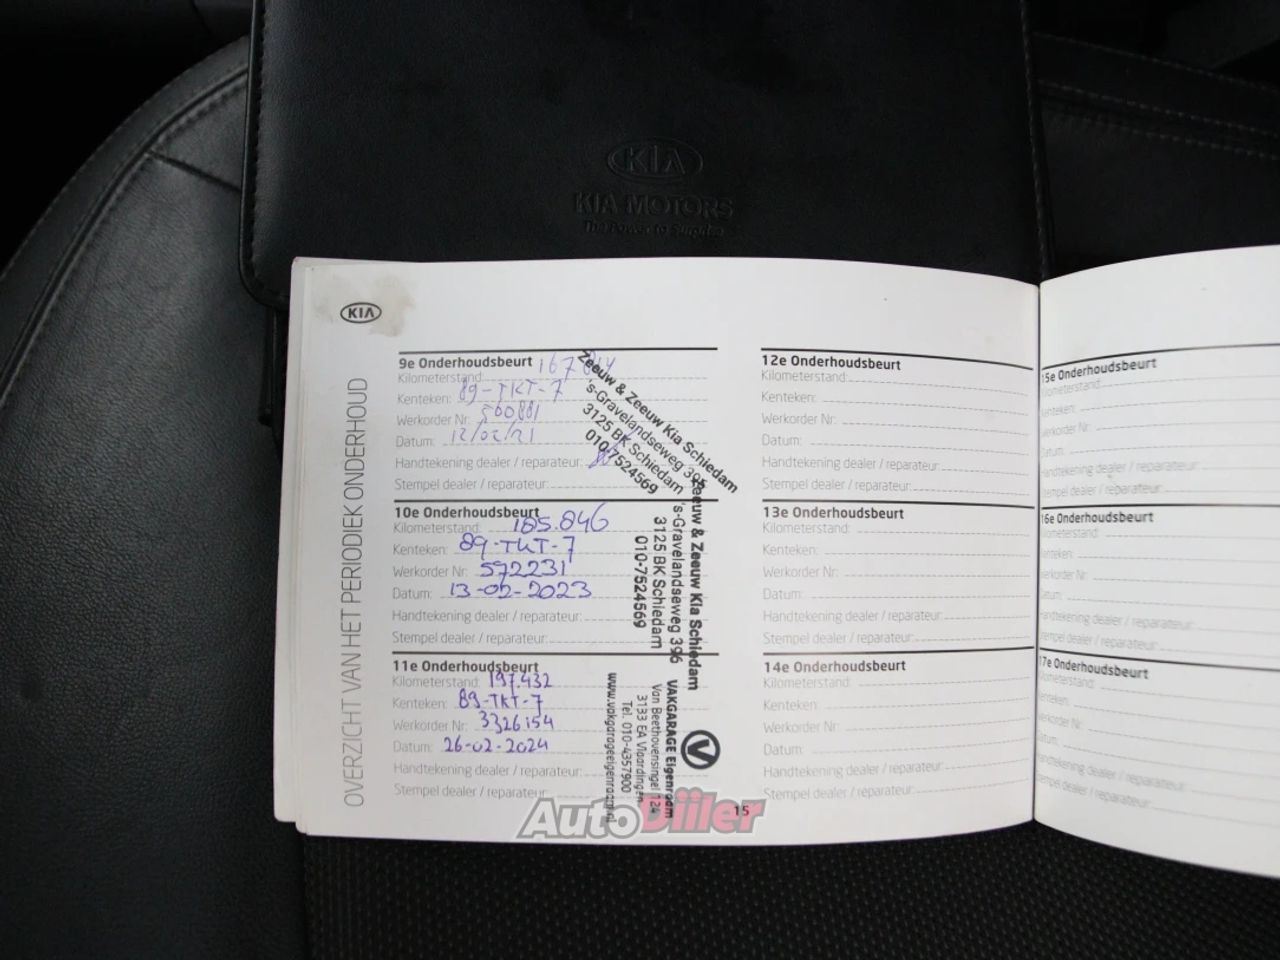 KIA
KIA MOTORS
The Power to Surprise
KIA
OVERZICHT VAN HET PERIODIEK ONDERHOUD
9e Onderhoudsbeurt
Kilometerstand: 167814
Kenteken: 89-TKT-7
Werkorder Nr: 560881
Datum: 12/02/21
Handtekening dealer / reparateur:
Stempel dealer / reparateur:
Zeeuw & Zeeuw Kia Schiedam
's-Gravelandseweg 396
3125 BK Schiedam
010-7524569
10e Onderhoudsbeurt
Kilometerstand: 185.846
Kenteken: 89-TKT-7
Werkorder Nr: 592231
Datum: 13-02-2023
Handtekening dealer / reparateur:
Stempel dealer / reparateur:
Zeeuw & Zeeuw Kia Schiedam
's-Gravelandseweg 396
3125 BK Schiedam
010-7524569
11e Onderhoudsbeurt
Kilometerstand: 197.432
Kenteken: 89-TKT-7
Werkorder Nr: 3326154
Datum: 26-02-2024
Handtekening dealer / reparateur:
Stempel dealer / reparateur:
VAKGARAGE Eigenraam
Van Beethovensingel 124
3133 EA Vlaardingen
Tel. 010-4357900
www.vakgarageeigenraam.nl
12e Onderhoudsbeurt
Kilometerstand:
Kenteken:
Werkorder Nr:
Datum:
Handtekening dealer / reparateur:
Stempel dealer / reparateur:
13e Onderhoudsbeurt
Kilometerstand:
Kenteken:
Werkorder Nr:
Datum:
Handtekening dealer / reparateur:
Stempel dealer / reparateur:
14e Onderhoudsbeurt
Kilometerstand:
Kenteken:
Werkorder Nr:
Datum:
Handtekening dealer / reparateur:
Stempel dealer / reparateur:
15
15e Onderhoudsbeurt
Kilometerstand:
Kenteken:
Werkorder Nr:
Datum:
Handtekening dealer / reparateur:
Stempel dealer / reparateur:
16e Onderhoudsbeurt
Kilometerstand:
Kenteken:
Werkorder Nr:
Datum:
Handtekening dealer / reparateur:
Stempel dealer / reparateur:
17e Onderhoudsbeurt
Kilometerstand:
Kenteken:
Werkorder Nr:
Datum:
Handtekening dealer / reparateur:
Stempel dealer / reparateur:
AutoDiiler